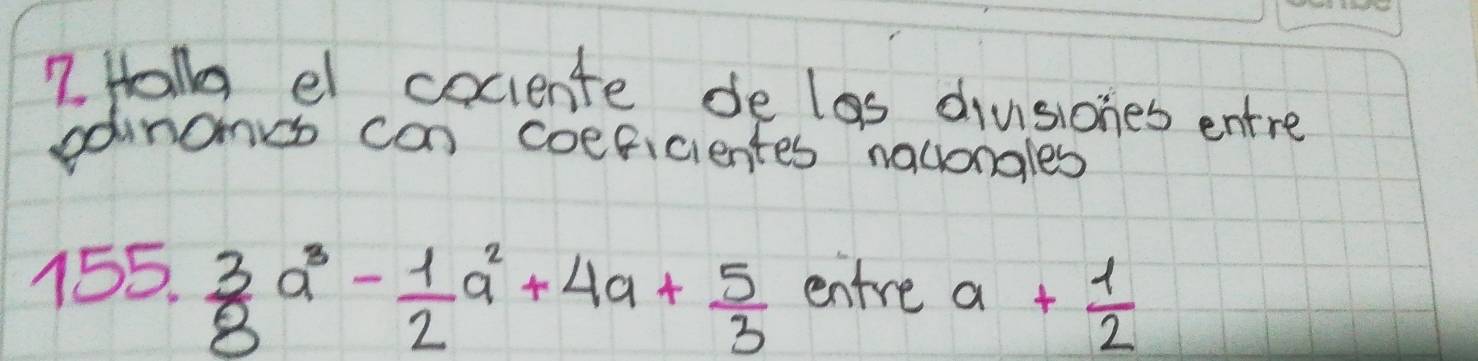 7. Halla el cociente de las divisiones entre
polinomios con coeficientes racionales
155. 3/8 a³ - 1/2 a² + 4a + 5/3 entre a + 1/2